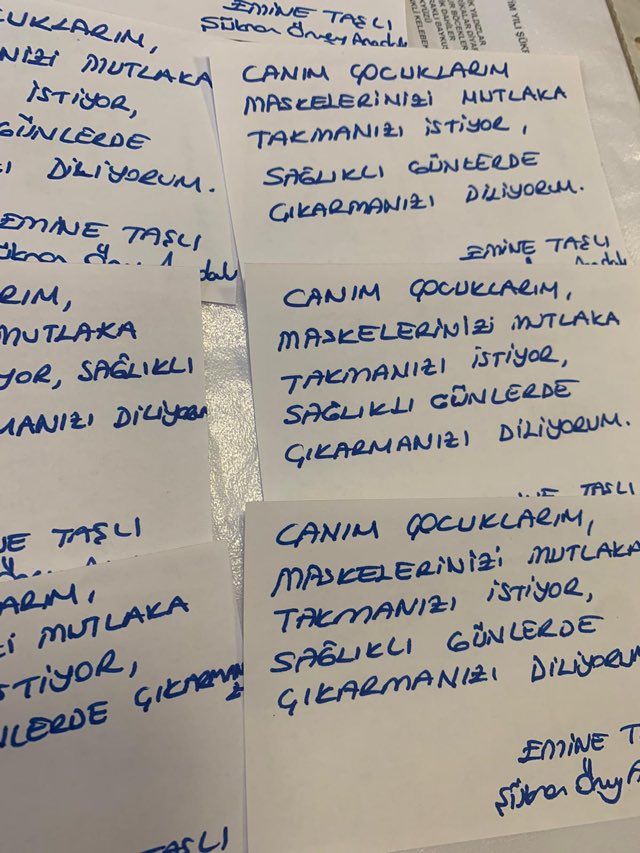 EMİNE TAŞLI
CUKLARIM,
NİZİ MUTLAKA
İSTİYOR,
GÜNLERDE
DİLİYORUM.
EMİNE TAŞLI
CANIM ÇOCUKLARIM
MASKELERİNİZİ MUTLAKA
TAKMANIZI İSTİYOR,
SAĞLIKLI GÜNLERDE
ÇIKARMANIZI DİLİYORUM.
EMİNE TAŞLI
RIM,
MUTLAKA
YOR, SAĞLIKLI
MANIZI DİLİYORUM
NE TAŞLI
CANIM ÇOCUKLARIM,
MASKELERİNİZİ MUTLAKA
TAKMANIZI İSTİYOR,
SAĞLIKLI GÜNLERDE
ÇIKARMANIZI DİLİYORUM.
TAŞLI
ARIM,
Zİ MUTLAKA
STİYOR,
NLERDE ÇIKARMANI
Zİ
TAŞLI
CANIM ÇOCUKLARIM,
MASKELERİNİZİ MUTLAKA
TAKMANIZI İSTİYOR,
SAĞLIKLI GÜNLERDE
ÇIKARMANIZI DİLİYORUM
EMİNE T